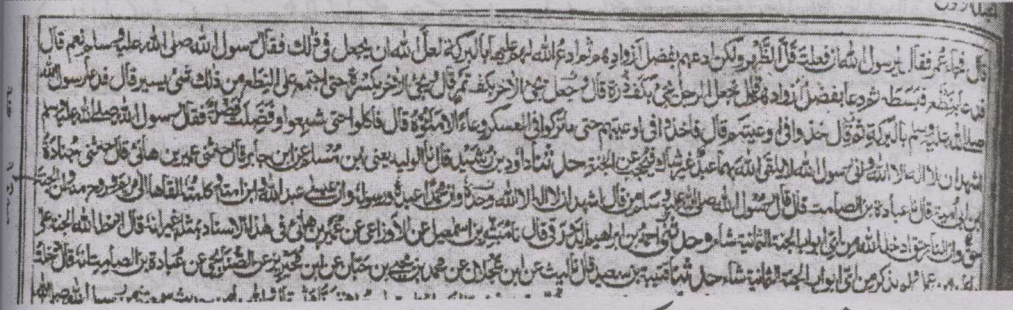 قال فجاء عمر فقال يا رسول الله ان فعلت قل الظهر ولكن ادعهم بفضل ازوادهم ثم ادع الله لهم عليها بالبركة لعل الله ان يجعل في ذلك فقال رسول الله صلى الله عليه وسلم نعم قال
فدعا بنطع فبسطه ثم دعا بفضل ازوادهم قال فجعل الرجل يجيء بكف ذرة قال وجعل يجيء الآخر بكف تمر قال ويجيء الآخر بكسرة حتى اجتمع على النطع من ذلك شيء يسير قال فدعا رسول الله
صلى الله عليه وسلم بالبركة ثم قال خذوا في اوعيتكم قال فاخذوا في اوعيتهم حتى ما تركوا في العسكر وعاء الا ملؤه قال فاكلوا حتى شبعوا وفضلت فضلة فقال رسول الله صلى الله عليه وسلم
اشهد ان لا اله الا الله واني رسول الله لا يلقى الله بهما عبد غير شاك فيحجب عن الجنة حدثنا داود بن رشيد قال نا الوليد يعني بن مسلم عن ابن جابر قال حدثني عمير بن هانئ قال حدثني جنادة
بن ابي امية قال نا عبادة بن الصامت قال قال رسول الله صلى الله عليه وسلم من قال اشهد ان لا اله الا الله وحده وان محمدا عبده ورسوله وان عيسى عبد الله وابن امته وكلمته القاها الى مريم وروح منه وان الجنة
حق وان النار حق ادخله الله من اي ابواب الجنة الثمانية شاء وحدثني احمد بن ابراهيم الدورقي قال نا مبشر بن اسمعيل عن الاوزاعي عن عمير بن هانئ في هذا الاسناد بمثله غير انه قال ادخله الله الجنة على
ما كان من عمل ولم يذكر من اي ابواب الجنة الثمانية شاء حدثنا قتيبة بن سعيد قال نا ليث عن ابن عجلان عن محمد بن يحيى بن حبان عن ابن محيريز عن الصنابحي عن عبادة بن الصامت انه قال دخلت